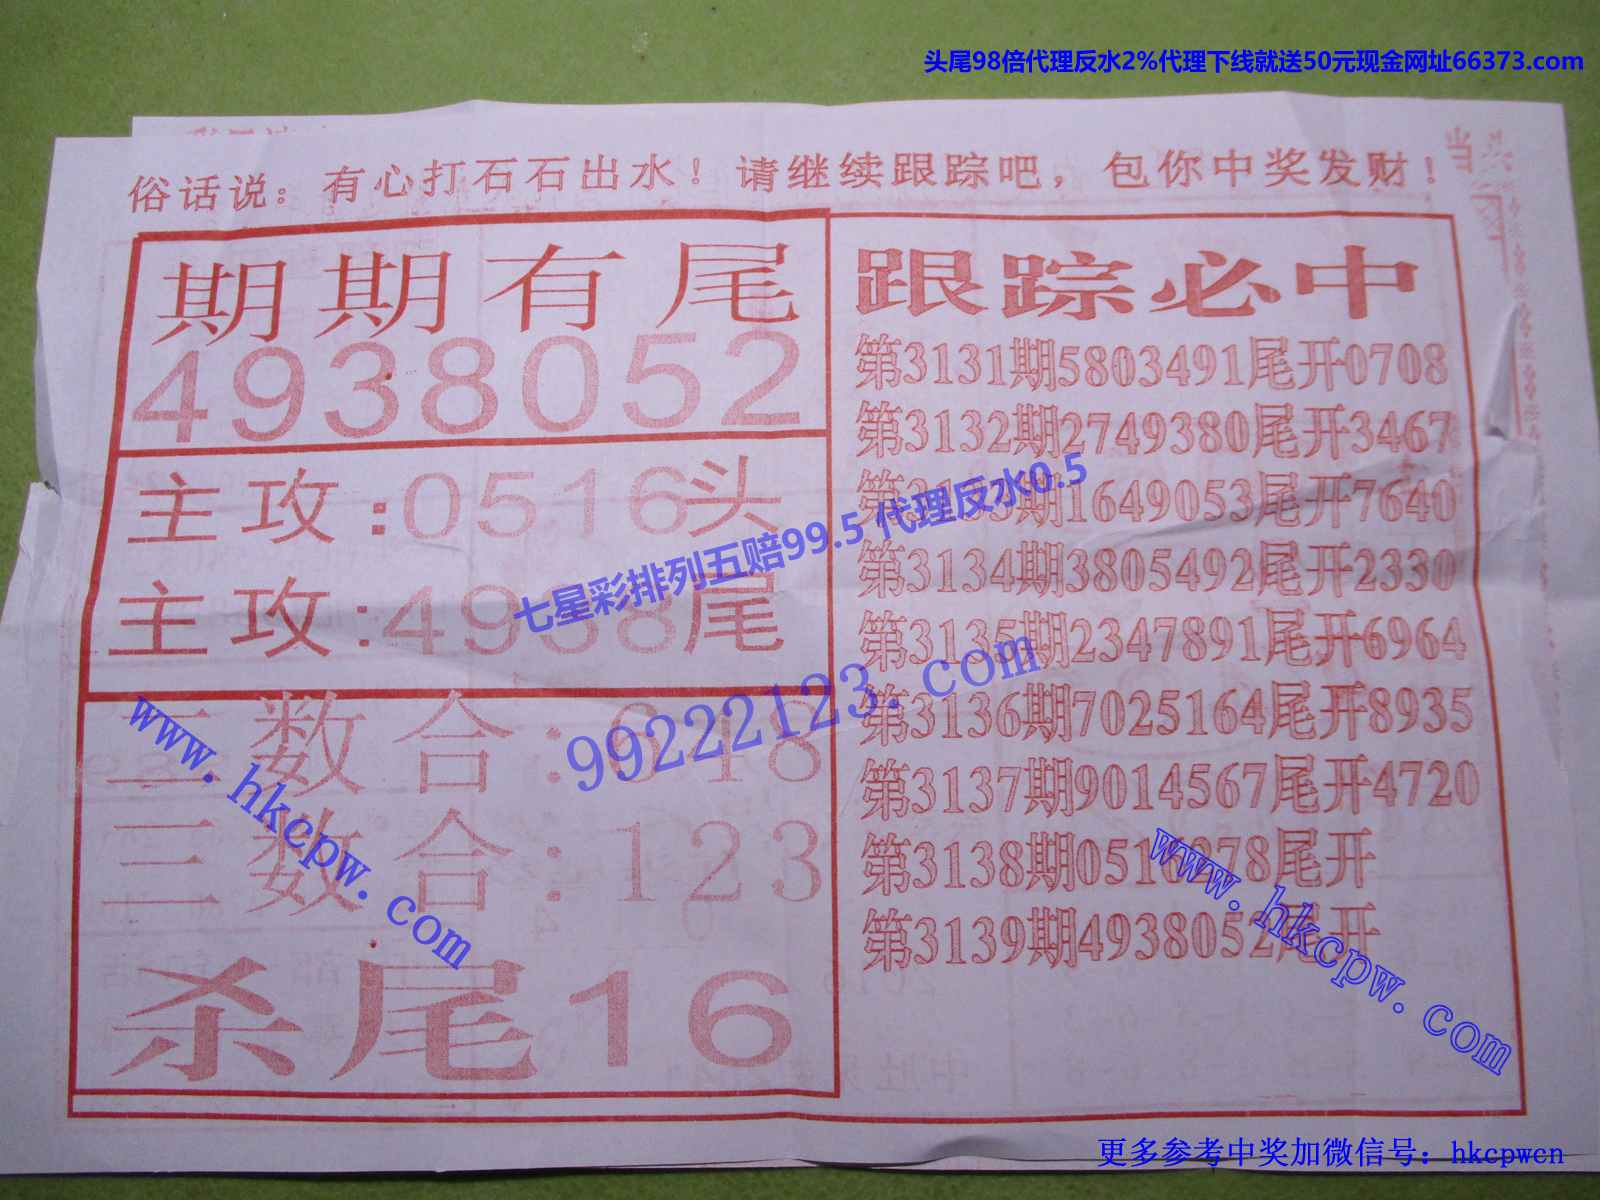 头尾98倍代理反水2%代理下线就送50元现金网址66373.com
俗话说：有心打石石出水！请继续跟踪吧，包你中奖发财！
期期有尾
4938052
主攻:0516头
主攻:4938尾
二数合:648
三数合:123
杀尾16
跟踪必中
第3131期5803491尾开0708
第3132期2749380尾开3467
第3133期1649053尾开7640
第3134期3805492尾开2330
第3135期2347891尾开6964
第3136期7025164尾开8935
第3137期9014567尾开4720
第3138期0516278尾开
第3139期4938052尾开
七星彩排列五赔99.5 代理反水0.5
99222123.com
www.hkcpw.com
www.hkcpw.com
更多参考中奖加微信号：hkcpwcn